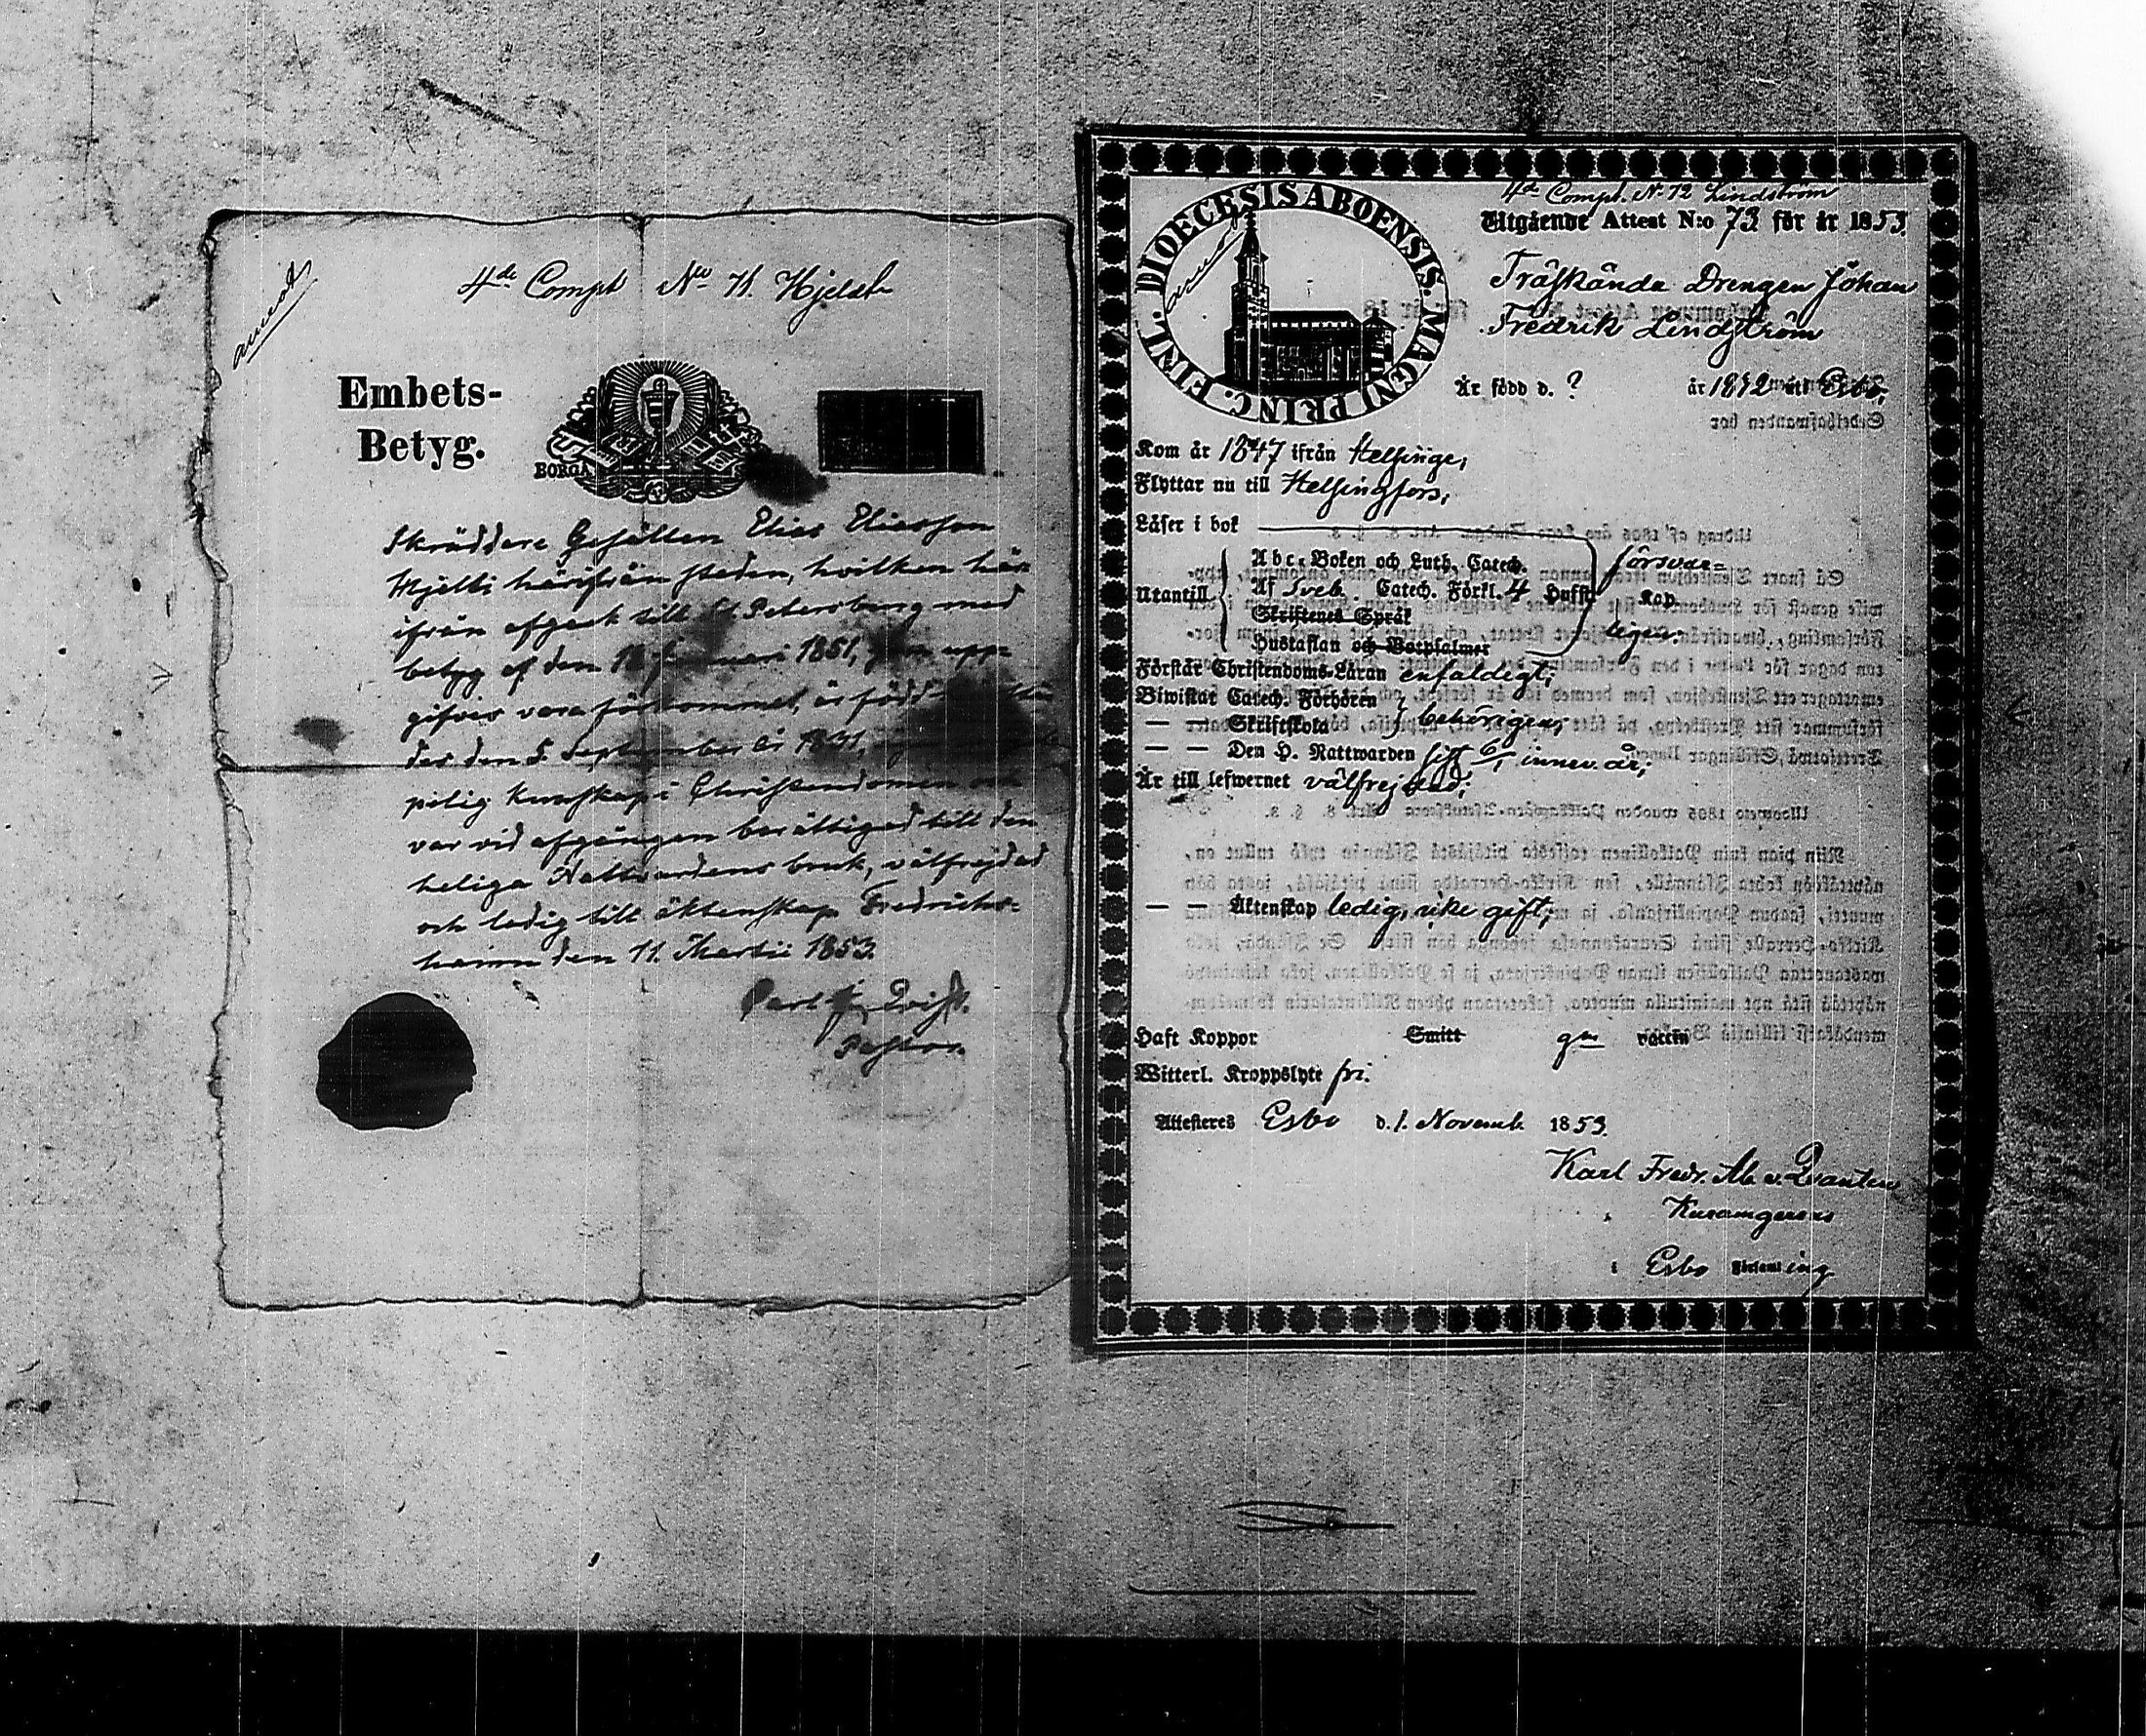 4de Comp Nro 71. Hjelt
Embets-
Betyg.
BORGÅ
Skräddare Gesällen Elias Eliasson
Hjelti härifrån staden, hvilken här
ifrån afgick till St Petersburg med
betyg af den 18 Januari 1851, upp-
gifves vara förkommet, är född
den 5 September år 1831,
pelig kunskap i Christendomen och
var vid afgången berättigad till den
heliga Nattvardens bruk, välfrejdad
och ledig till äktenskap. Fredrichs-
hamn den 11. Martii 1853.
Carl Qvist.
Pastor.
DIOECESIS ABOENSIS. MAGNI PRINC. FINL.
4de Comp. No 72 Lindström
Utgående Attest N:o 73 för år 1853.
Träskända Drengen Johan
Fredrik Lindström
Är född d. ? år 1832 uti Esbo,
Kom år 1847 ifrån Helsinge,
Flyttar nu till Helsingfors,
Läser i bok
Abc-Boken och Luth. Catech. försvar-
Utantill Af Sveb. Catech. Förkl. 4 Hufst. kap
Skriftenes Språk ligen.
Hustaflan och Botpsalmer
Förstår Christendoms-Läran enfaldigt;
Biwistat Catech. Förhören
— — Skriftskola behörigen;
— — Den H. Nattwarden sist innev. år;
Är till lefwernet välfrejdad;
— — Äktenskap ledig, icke gift;
Haft Koppor Smitt gm vaccin
Witterl. Kroppslyte fri.
Attesteres Esbo d. 1. Novemb. 1853.
Karl Fredr. v. Qvanten
i Esbo Församling